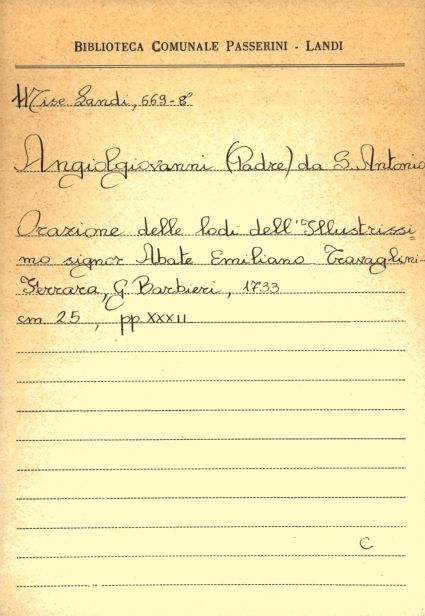 BIBLIOTECA COMUNALE PASSERINI - LANDI
Misc Landi, 669-8°
Angiolgiovanni (Padre) da S. Antonio
Orazione delle lodi dell'Illustrissi=
mo signor Abate Emiliano Travaglini-
Ferrara, G Barbieri, 1733
cm 25, pp. XXXII
C